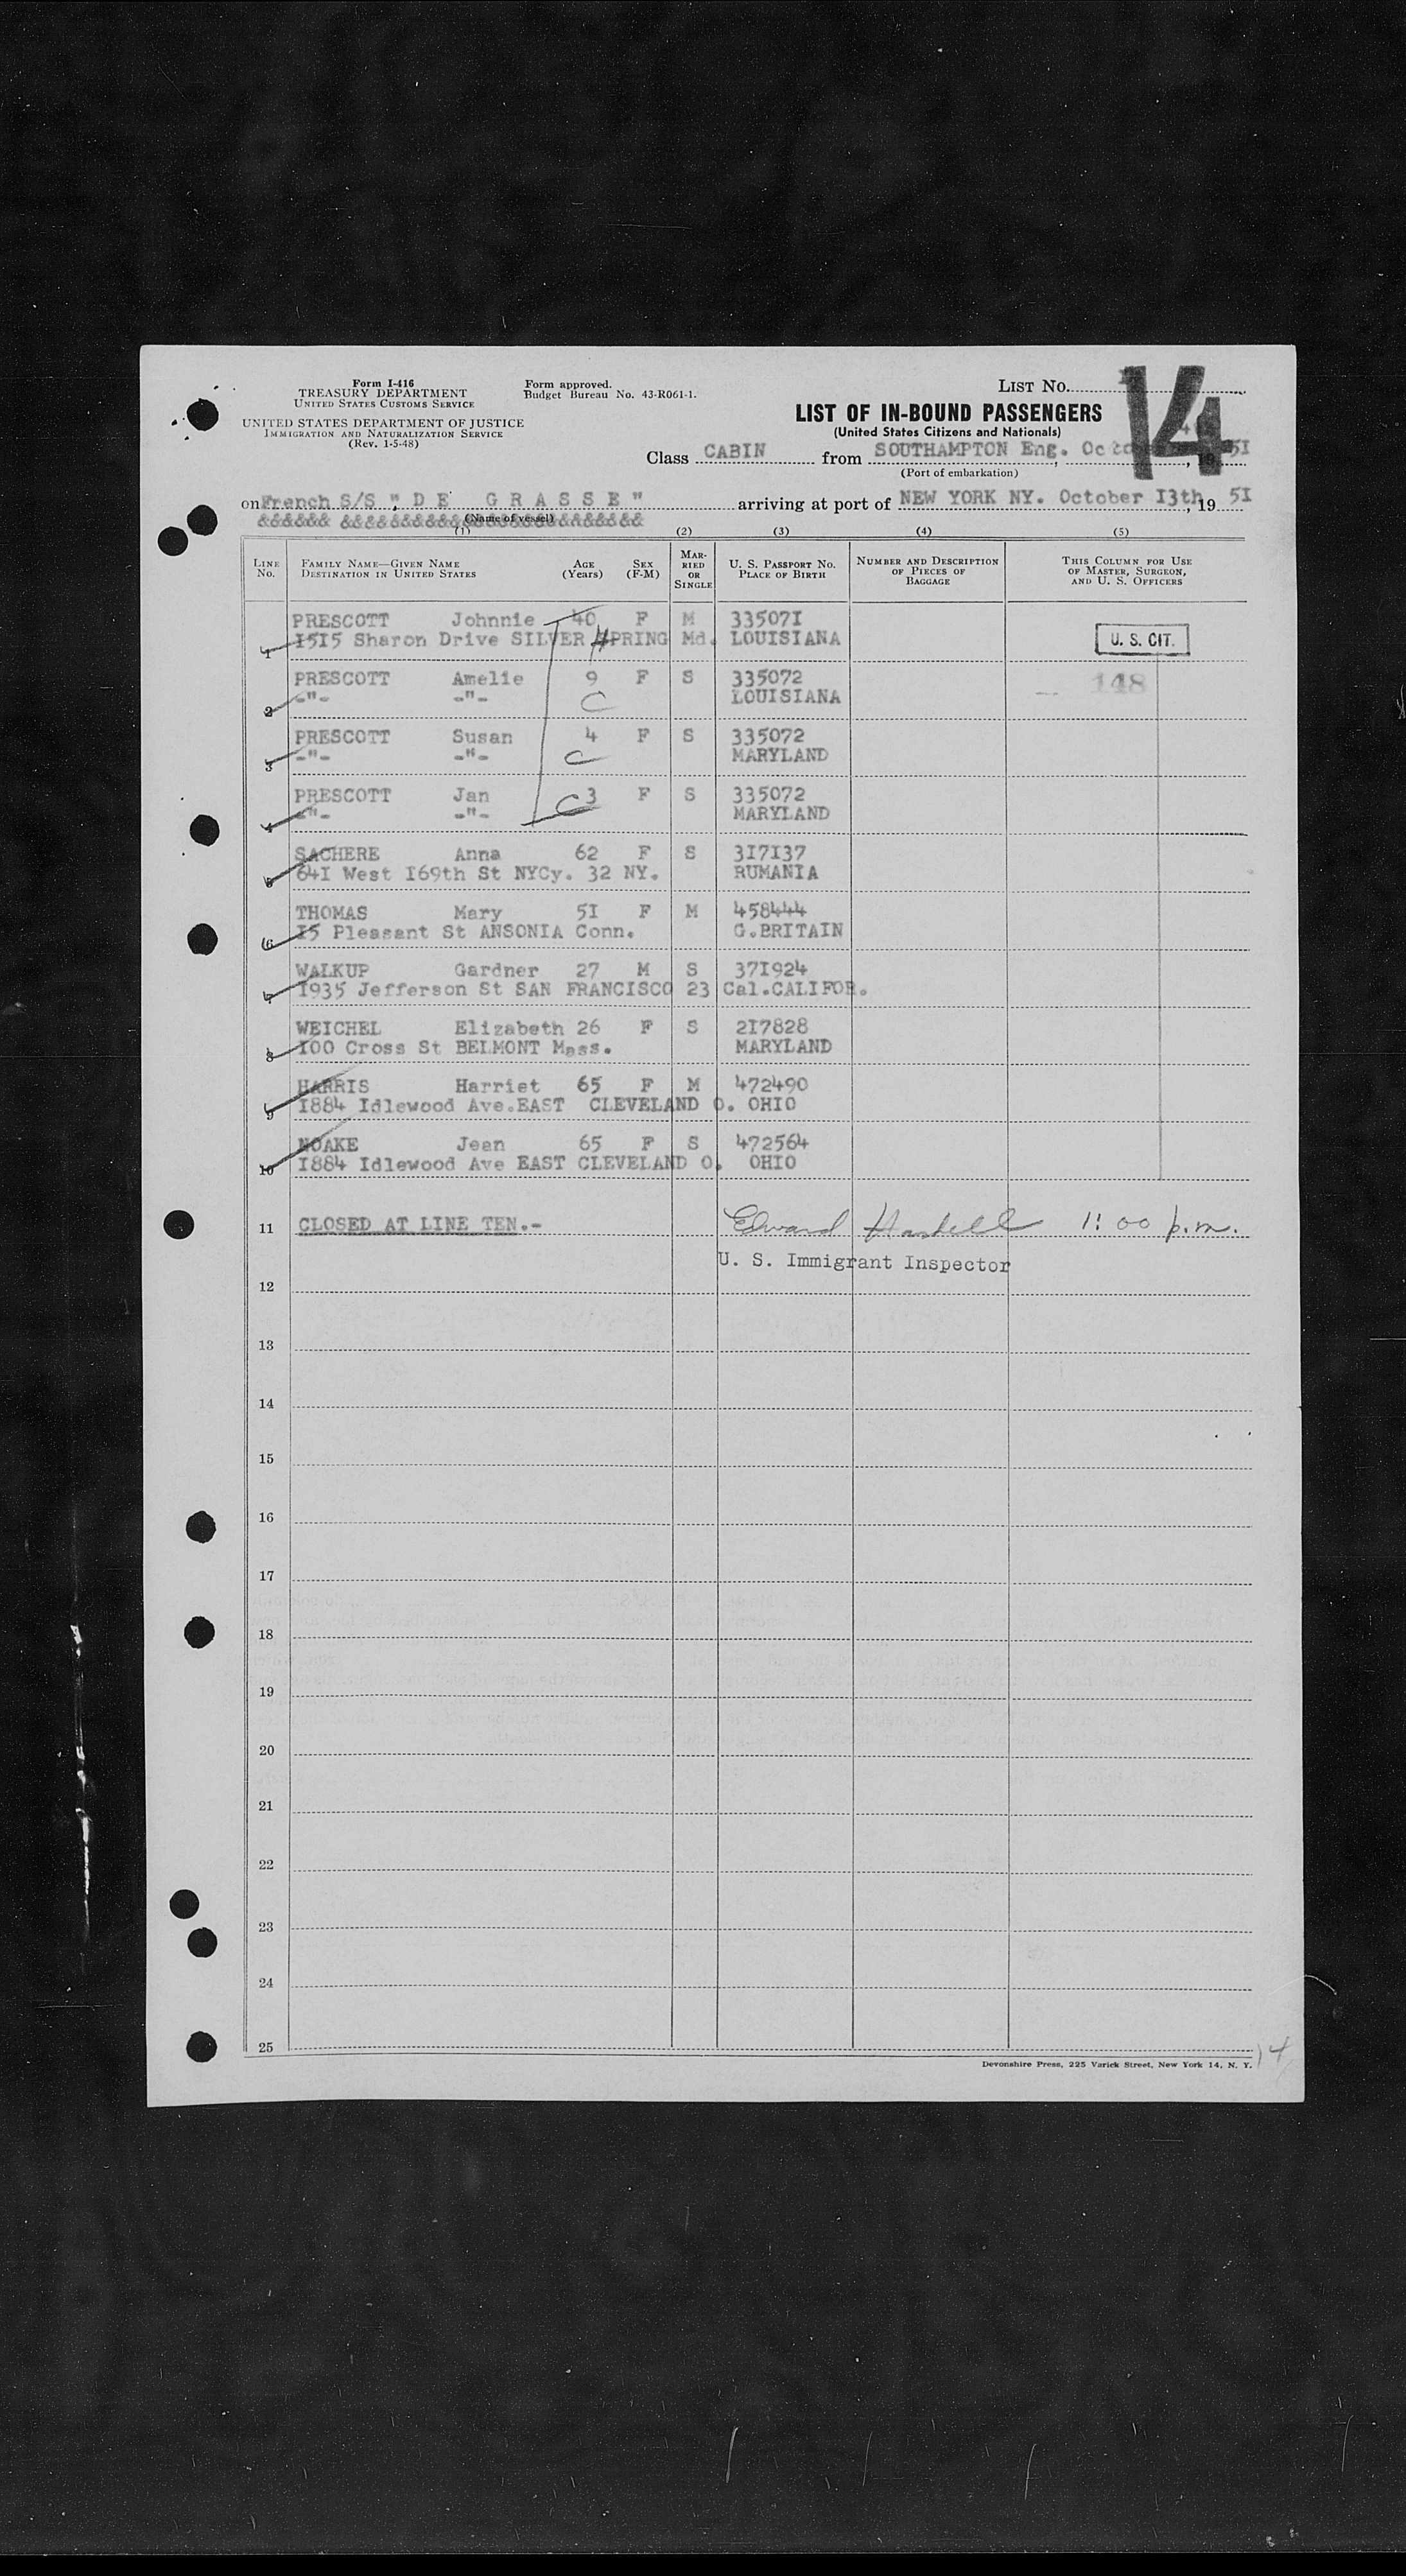 Form I-416
TREASURY DEPARTMENT
UNITED STATES CUSTOMS SERVICE
UNITED STATES DEPARTMENT OF JUSTICE
IMMIGRATION AND NATURALIZATION SERVICE
(Rev. 1-5-48)
Form approved.
Budget Bureau No. 43-R061-1.
LIST No. 14
LIST OF IN-BOUND PASSENGERS
(United States Citizens and Nationals)
Class CABIN from SOUTHAMPTON Eng. October , 19 5I
(Port of embarkation)
on French S/S " D E G R A S S E " arriving at port of NEW YORK NY. October I3th, 19 5I
&&&&&& &&&&&&&&&&&&&&&&&&&&&&&&
(Name of vessel)
(1) (2) (3) (4) (5)
LINE No. FAMILY NAME—GIVEN NAME DESTINATION IN UNITED STATES AGE (Years) SEX (F-M) MARRIED OR SINGLE U. S. PASSPORT No. PLACE OF BIRTH NUMBER AND DESCRIPTION OF PIECES OF BAGGAGE THIS COLUMN FOR USE OF MASTER, SURGEON, AND U. S. OFFICERS
PRESCOTT Johnnie 40 F M 33507I
1 I5I5 Sharon Drive SILVER SPRING Md. LOUISIANA U. S. CIT.
PRESCOTT Amelie 9 F S 335072 148
2 -"- -"- C LOUISIANA
PRESCOTT Susan 4 F S 335072
3 -"- -"- C MARYLAND
PRESCOTT Jan C 3 F S 335072
4 -"- -"- MARYLAND
SACHERE Anna 62 F S 3I7I37
5 64I West I69th St NYCy. 32 NY. RUMANIA
THOMAS Mary 5I F M 458444
6 I5 Pleasant St ANSONIA Conn. G.BRITAIN
WALKUP Gardner 27 M S 37I924
7 I935 Jefferson St SAN FRANCISCO 23 Cal.CALIFOR.
WEICHEL Elizabeth 26 F S 2I7828
8 I00 Cross St BELMONT Mass. MARYLAND
HARRIS Harriet 65 F M 472490
9 I884 Idlewood Ave.EAST CLEVELAND O. OHIO
NOAKE Jean 65 F S 472564
10 I884 Idlewood Ave EAST CLEVELAND O. OHIO
11 CLOSED AT LINE TEN.- Edward Haskell 1:00 p.m.
U. S. Immigrant Inspector
12
13
14
15
16
17
18
19
20
21
22
23
24
25
Devonshire Press, 225 Varick Street, New York 14, N. Y.
14